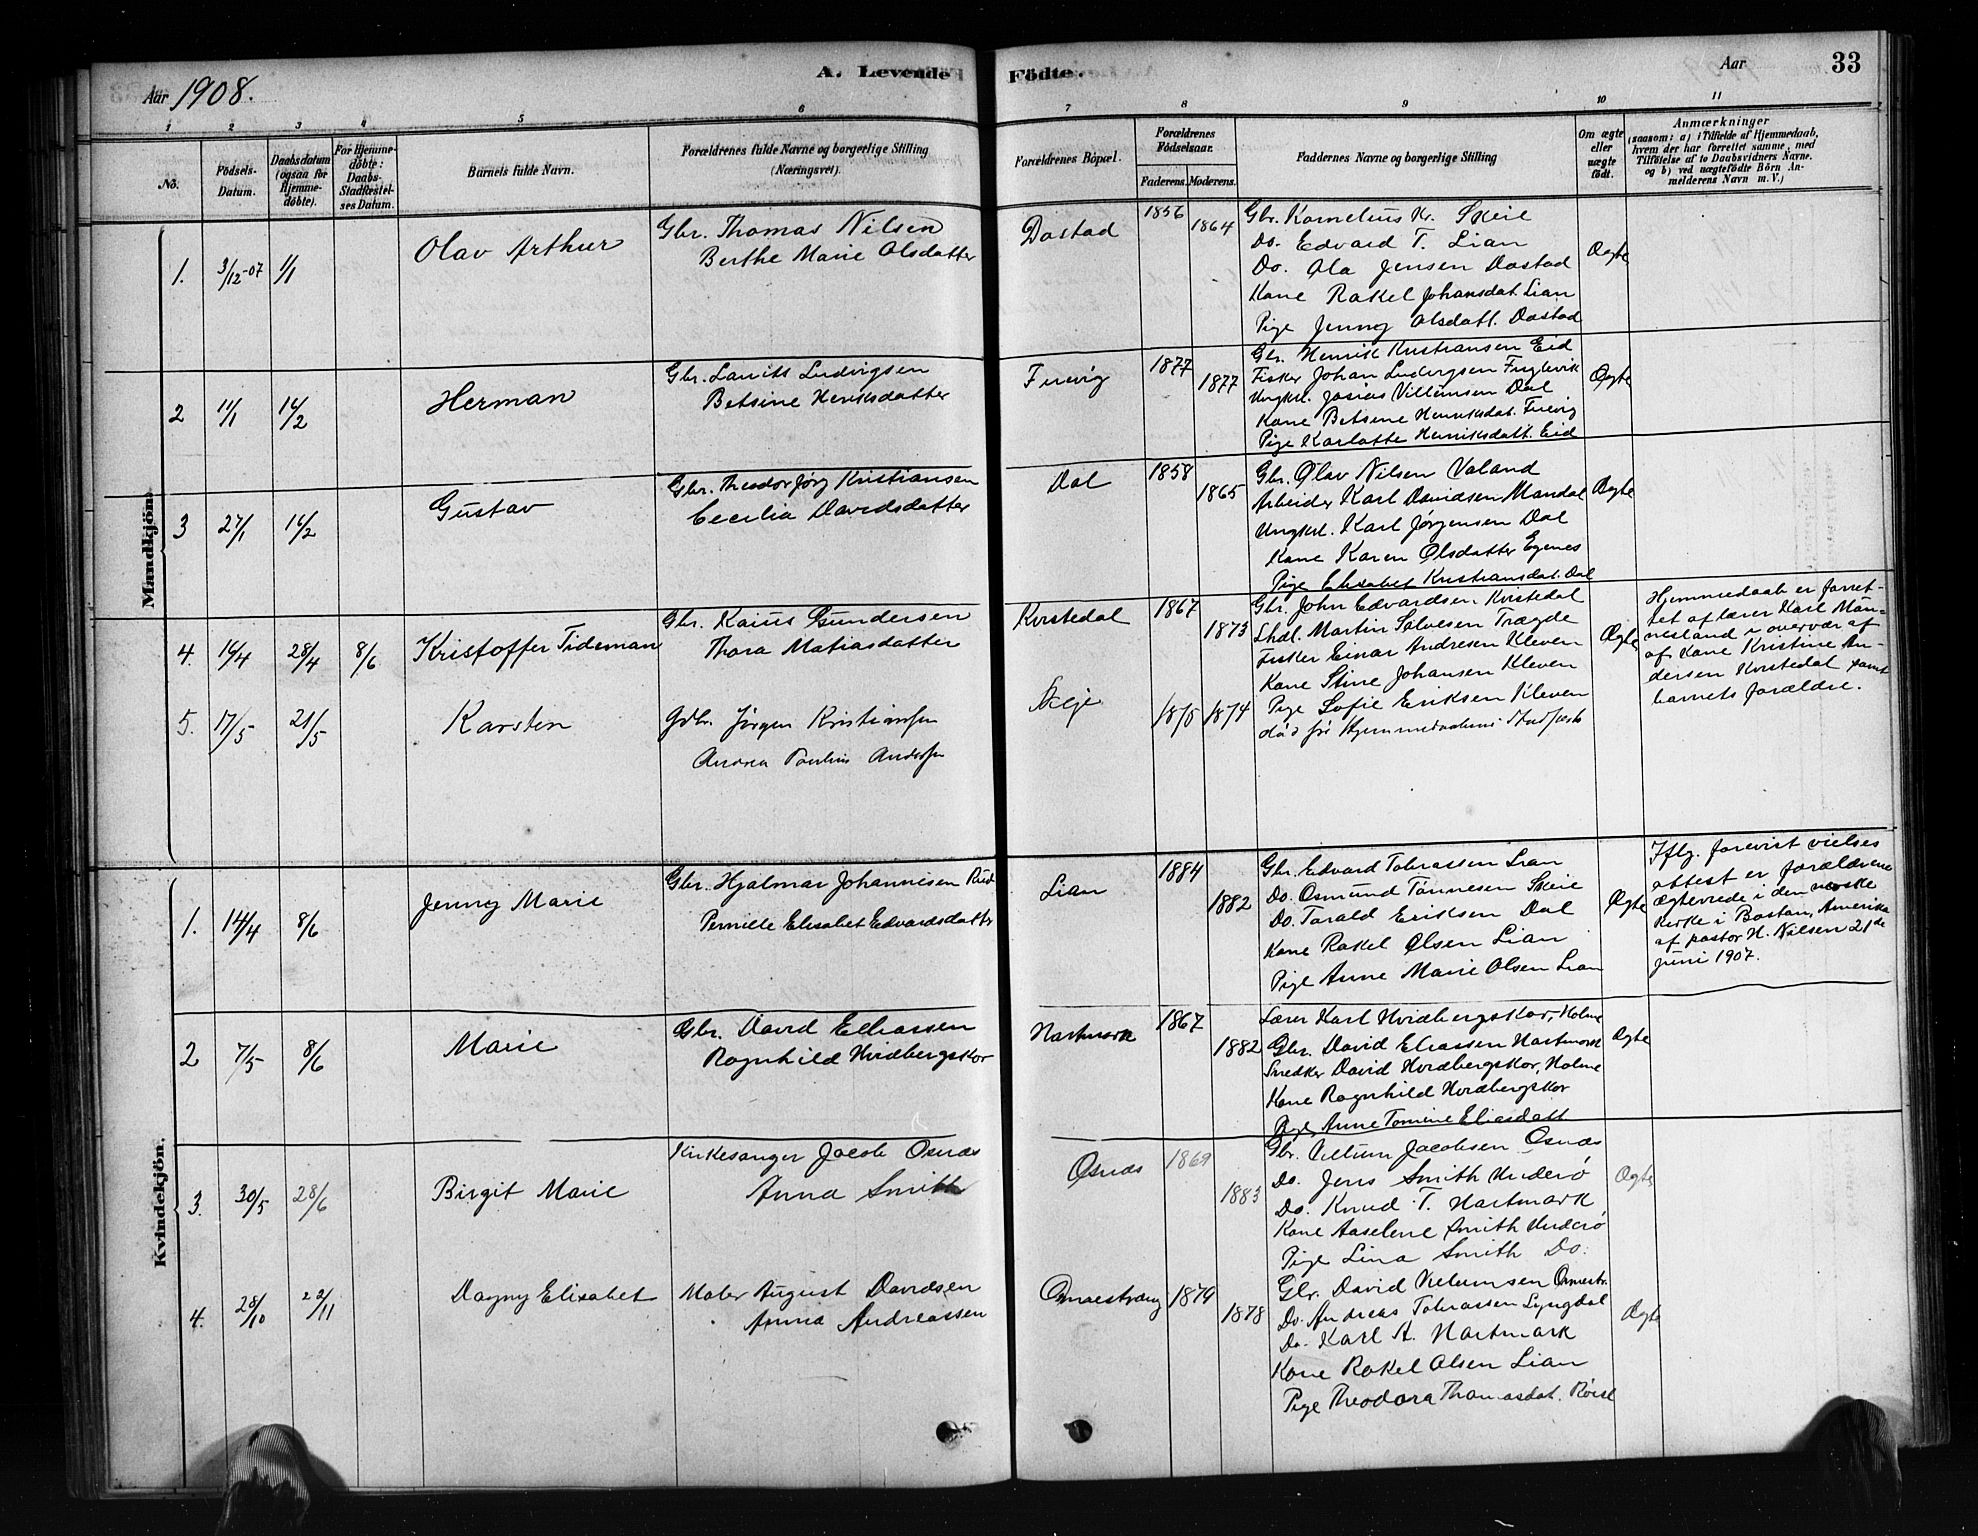 Aar 1908.
A. Levende
Fødte.
Aar
33
1 2 3 4 5 6 7 8 9 10 11
No.
Fødsels-Datum.
Daabsdatum (ogsaa for Hjemme-døbte).
For Hjemme-døbte: Daabs-Stadfæstel-ses Datum.
Barnets fulde Navn.
Forældrenes fulde Navne og borgerlige Stilling (Næringsvei).
Forældrenes Bopæl.
Forældrenes Fødselsaar.
Faderens. Moderens.
Faddernes Navne og borgerlige Stilling
Om ægte eller uægte født.
Anmærkninger
(saasom: a) i Tilfælde af Hjemmedaab, hvem der har forrettet samme, med Tilføielse af to Daabsvidners Navne. og b) ved uægtefødte Børn Anmelderens Navn m. V.)
Mandkjøn.
1. 3/12-07 1/1 Olav Arthur
Gbr. Thomas Nilsen
Berthe Marie Olsdatter
Dastad 1856 1864
Gbr. Kornelius Kr. Skeie
Do. Edvard T. Lian
Do. Ola Jensen Dastad
Kone Rakel Johansdat. Lian
Pige Jenny Olsdatt. Dastad
Ægte
2 11/1 16/2 Herman
Gbr. Laurits Ludvigsen
Betsine Henriksdatter
Furvig 1877 1877
Gbr. Henrik Kristiansen Eid
Fisker Johan Ludvigsen Fuglevik
Ungkl. Josias Villumsen Dal
Kone Betsine Henriksdat. Furvig
Pige Karlotte Henriksdatt. Eid
Ægte
3 27/1 16/2 Gustav
Gbr. Theodor Jørg Kristiansen
Cecilia Davidsdatter
Dal 1858 1865
Gbr. Olav Nilsen Valand
Arbeider Karl Davidsen Mandal
Ungkl. Karl Jørgensen Dal
Kone Karen Olsdatter Egenes
Pige Elisabet Kristiansdat. Dal
Ægte
4. 16/4 28/4 8/6 Kristoffer Tideman
Gbr. Kaius Gundersen
Thora Matiasdatter
Kvistedal 1867 1873
Gbr. John Edvardsen Kvistedal
Martin Salvesen Trægde
Fisker Einar Andresen Kleven
Kone Stine Johansen Kleven
Pige Sofie Eriksen Kleven
Ægte
Hjemmedaab er forret-
tet af lærer Karl Man-
nesland i overvær af
af Kone Kristine An-
dersen Kvistedal samt
barnets forældre.
5. 17/5 21/5 Karsten
Gbr. Jørgen Kristiansen
Andrea Andersen
Skeje 1875 1874
død før Hjemmedaabens Stadfæst
Kvindekjøn.
1. 14/4 8/6 Jenny Marie
Gbr. Hjalmar Johannesen Rud
Pernille Elisabet Edvardsdatter
Lian 1884 1882
Gbr. Edvard Tobiassen Lian
Do. Osmund Tønnesen Skeie
Do. Torald Eriksen Dal
Kone Rakel Olsen Lian
Pige Anne Marie Olsen Lian
Ægte
Iflg. forevist vielses
attest er forældrene
ægteviede i den norske
kirke i Boston, Amerika
af pastor H. Nilsen 21de
juni 1907.
2 7/5 8/6 Marie
Gbr. David Eliassen
Ragnhild Hvidbergskor
Hartmark 1867 1882
Lærer Karl Hvidbergskor, Holme
Gbr. David Eliassen Hartmark
Snedker David Hvidbergskor, Holme
Kone Ragnhild Hvidbergskor
Pige Anne Tomine Eliasdatt
Ægte
3. 30/5 28/6 Birgit Marie
Kirkesanger Jacob Osnæs
Anna Smith
Osnæs 1869 1883
Gbr. Villum Jacobsen Osnæs
Do. Jens Smith Underø
Do. Knud T. Hartmark
Kone Aaselene Smith Underø
Pige Lina Smith Do.
Ægte
4. 28/10 22/11 Dagny Elisabet
Maler August Davidsen
Anna Andreassen
1879 1878
Gbr. David Villumsen
Do. Andreas Tobiassen Lyngdal
Do. Karl A. Hartmark
Kone Rakel Olsen Lian
Pige Theodora Thomasdat.
Ægte